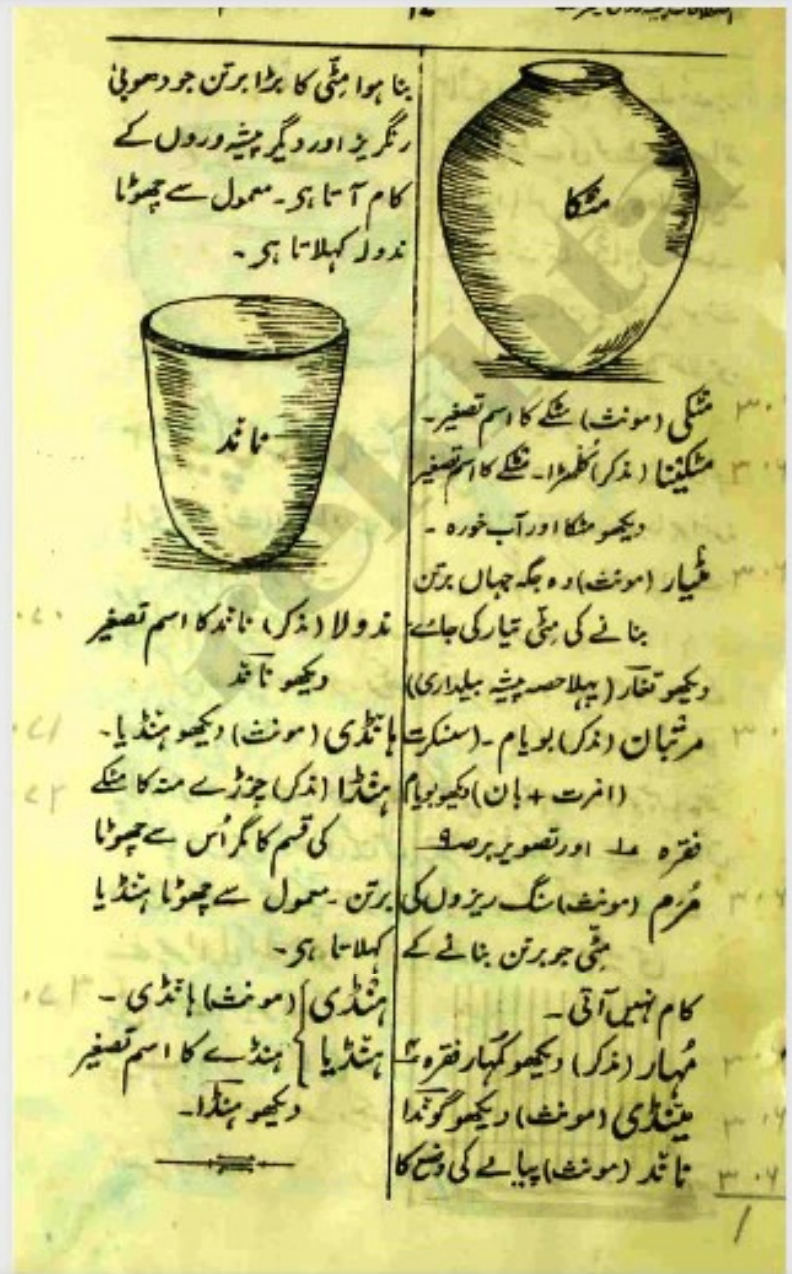 ۱۲
مٹکا
مٹکی (مونث) مٹکے کا اسم تصغیر۔
مٹکینا (مذکر) کُلھڑا۔ مٹکے کا اسم تصغیر
دیکھو مٹکا اور آب خورہ ۔
مٹیار (مونث) وہ جگہ جہاں برتن
بنانے کی مٹّی تیار کی جائے
دیکھو تغار (پہلا حصہ پیشہ بیلداری)
مرتبان (مذکر) بویام ۔ (سنسکرت
(امرت + بان) دیکھو بویام
فقرہ ۱۰ اور تصویر برصہ ۹
مُرَم (مونث) سنگ ریزوں کی
مٹّی جو برتن بنانے کے
کام نہیں آتی ۔
مُہار (مذکر) دیکھو کُہار فقرہ ۴
مینڈی (مونث) دیکھو گوندا
ناند (مونث) پیالے کی وضع کا
بنا ہوا مٹّی کا بڑا برتن جو دھوبی
رنگریز اور دیگر پیشہ وروں کے
کام آتا ہی ۔ معمول سے چھوٹا
ندولہ کہلاتا ہی ۔
ناند
ندولا (مذکر) ناند کا اسم تصغیر
دیکھو ناند
ہانڈی (مونث) دیکھو ہنڈیا ۔
ہنڈا (مذکر) چوڑے منہ کا مٹکے
کی قسم کا مگر اُس سے چھوٹا
برتن ۔ معمول سے چھوٹا ہنڈیا
کہلاتا ہی ۔
ہنڈی (مونث) ہانڈی ۔
ہنڈیا ہنڈے کا اسم تصغیر
دیکھو ہنڈا ۔
rekhta